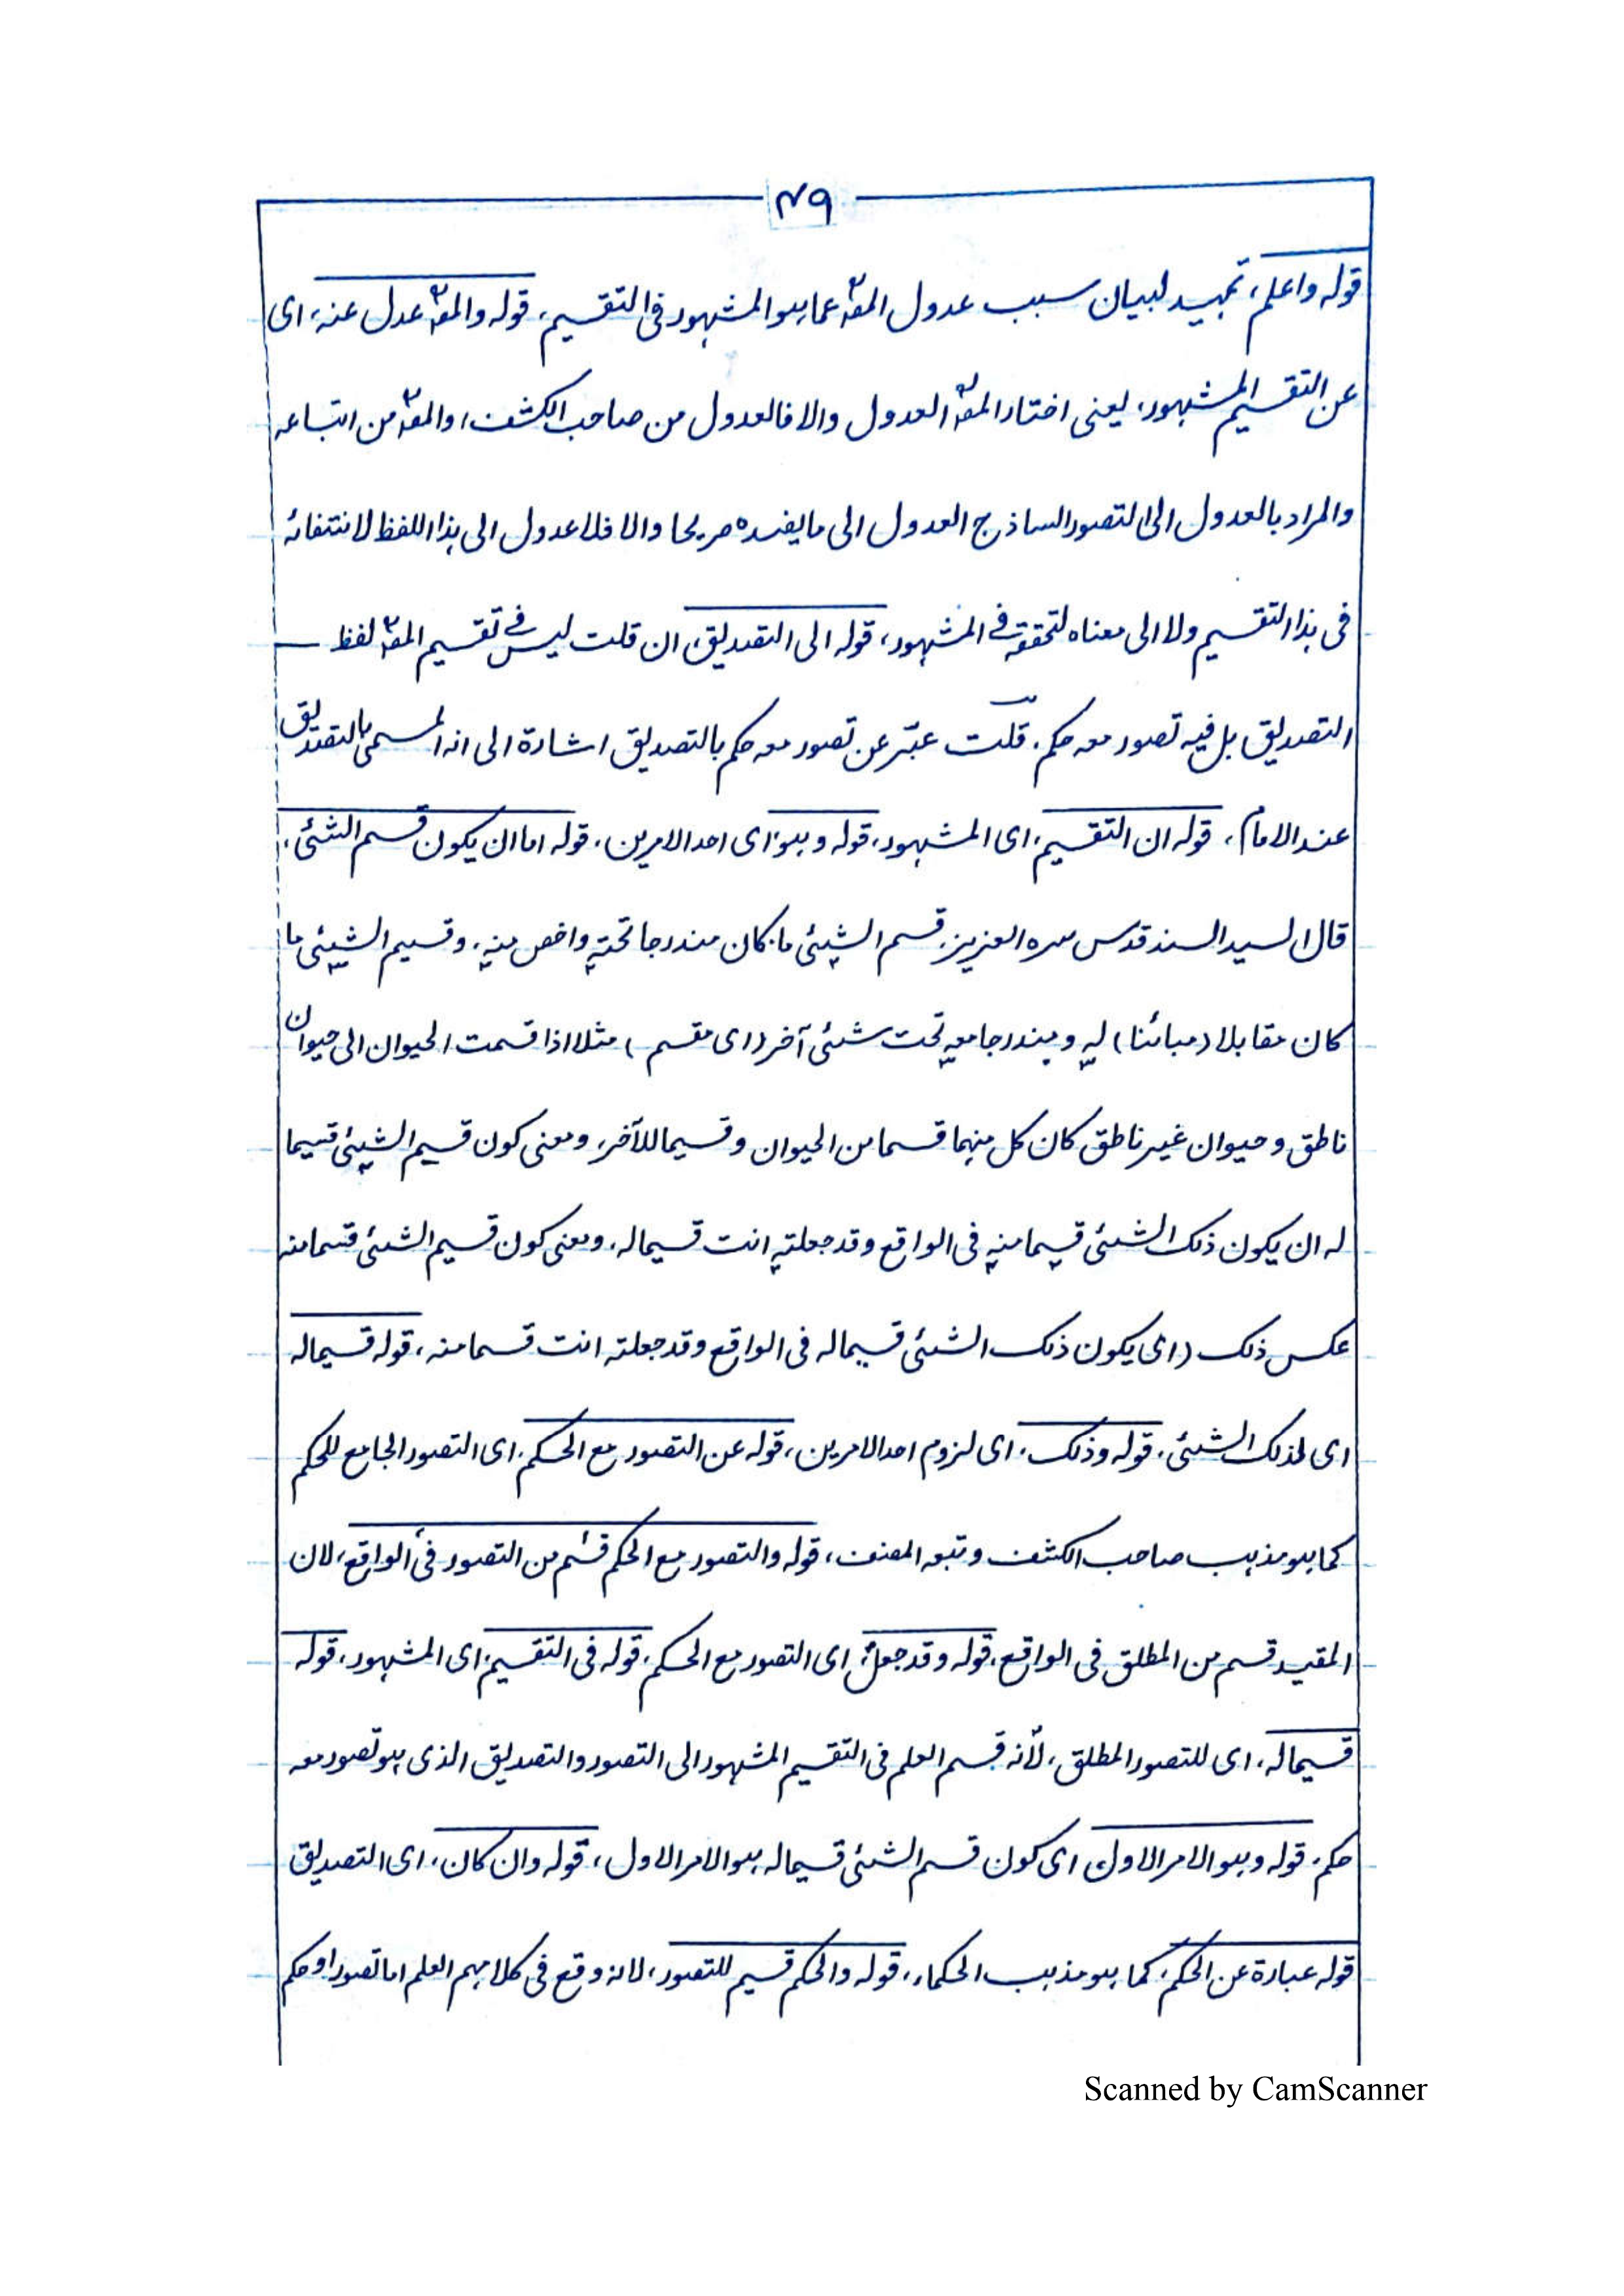 ٤٩
قوله واعلم، تمهيد لبيان سبب عدول المصؒ عما هو المشهور فى التقسيم، قوله والمصؒ عدل عنه، اى
عن التقسيم المشهور، يعنى اختار المصؒ العدول والا فالعدول من صاحب الكشف، والمصؒ من اتباعه
والمراد بالعدول الى التصور الساذج العدول الى ما يفسده صريحا والا فلا عدول الى هذا اللفظ لانتفائه
فى هذا التقسيم ولا الى معناه لتحققه فى المشهور، قوله الى التصديق، ان قلت ليس فى تقسيم المصؒ لفظ
التصديق بل فيه تصور معه حكم، قلت عبّر عن تصور معه حكم بالتصديق اشارة الى انه المسمى بالتصديق
عند الامام، قوله ان التقسيم، اى المشهور، قوله وهو، اى احد الامرين، قوله اما ان يكون قسم الشئى،
قال السيد السند قدس سره العزيز، قسم الشيئى ما كان مندرجا تحته واخص منه، وقسيم الشيئى ما
كان مقابلا (مبائنا) له ومندرجا معه تحت شئى آخر (اى مقسم) مثلا اذا قسمت الحيوان الى حيوان
ناطق وحيوان غير ناطق كان كل منهما قسما من الحيوان وقسيما للآخر، ومعنى كون قسيم الشيئى قسيما
له ان يكون ذلك الشئى قسيما منه فى الواقع وقد جعلته انت قسيما له، ومعنى كون قسيم الشئى قسما منه
عكس ذلك (اى يكون ذلك الشئى قسيما له فى الواقع وقد جعلته انت قسما منه، قوله قسيما له
اى لذلك الشئى، قوله وذلك، اى لزوم احد الامرين، قوله عن التصور مع الحكم، اى التصور الجامع للحكم
كما هو مذهب صاحب الكشف وتبعه المصنف، قوله والتصور مع الحكم قسم من التصور فى الواقع، لان
المقيد قسم من المطلق فى الواقع، قوله وقد جعل، اى التصور مع الحكم، قوله فى التقسيم، اى المشهور، قوله
قسيما له، اى للتصور المطلق، لأنه قسم العلم فى التقسيم المشهور الى التصور والتصديق الذى هو تصور معه
حكم، قوله وهو الامر الاول اى كون قسم الشئى قسيما له هو الامر الاول، قوله وان كان، اى التصديق
قوله عبارة عن الحكم، كما هو مذهب الحكماء، قوله والحكم قسيم للتصور، لانه وقع فى كلامهم العلم اما تصور او حكم
Scanned by CamScanner